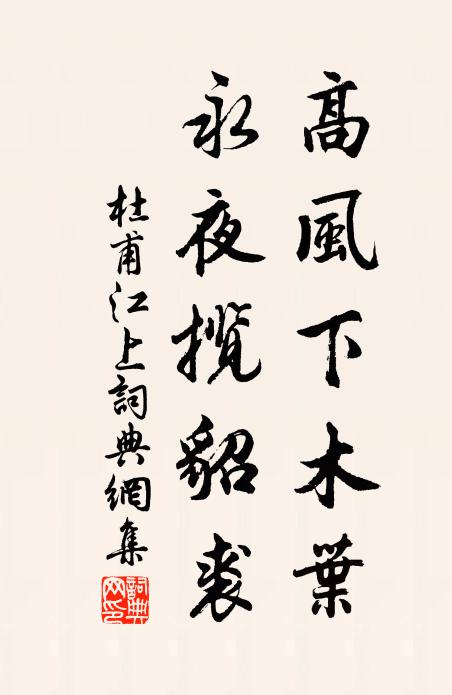 高風下木葉
永夜攬貂裘
杜甫江上詞典網集
詞典网印